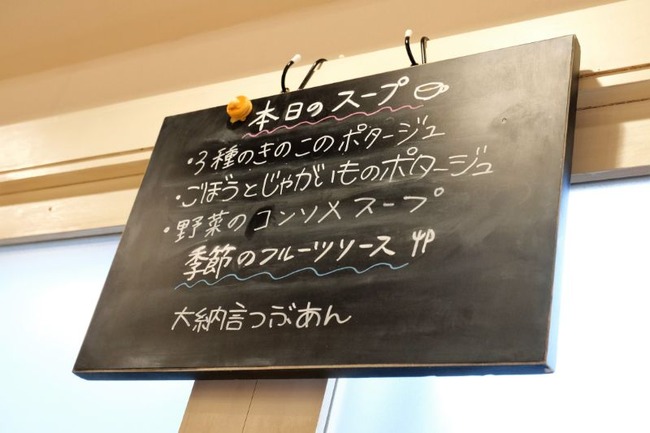 本日のスープ
・3種のきのこのポタージュ
・ごぼうとじゃがいものポタージュ
・野菜のコンソメスープ
季節のフルーツソース
大納言つぶあん